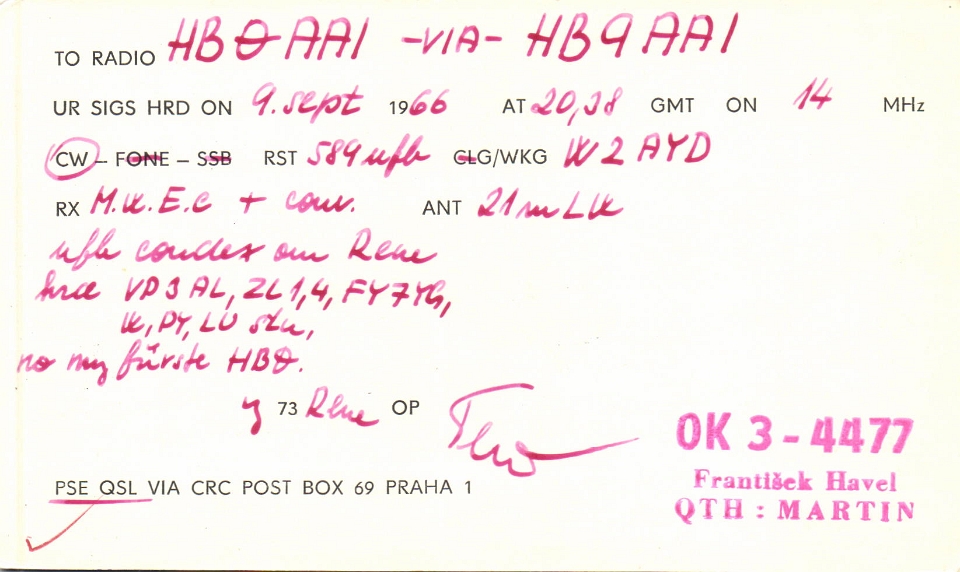 TO RADIO HBØAAI -VIA- HB9AAI
UR SIGS HRD ON 9. sept 1966 AT 20,38 GMT ON 14 MHz
CW - FONE - SSB RST 589 ufb CLG/WKG W2AYD
RX M.W.E.C + conv. ANT 21m LW
ufb condex om Rene
hrce VP3AL, ZL1,4, FY7YG,
W, PY, LU stn,
no my fürste HBØ.
y 73 Rene OP
OK 3-4477
František Havel
QTH : MARTIN
PSE QSL VIA CRC POST BOX 69 PRAHA 1